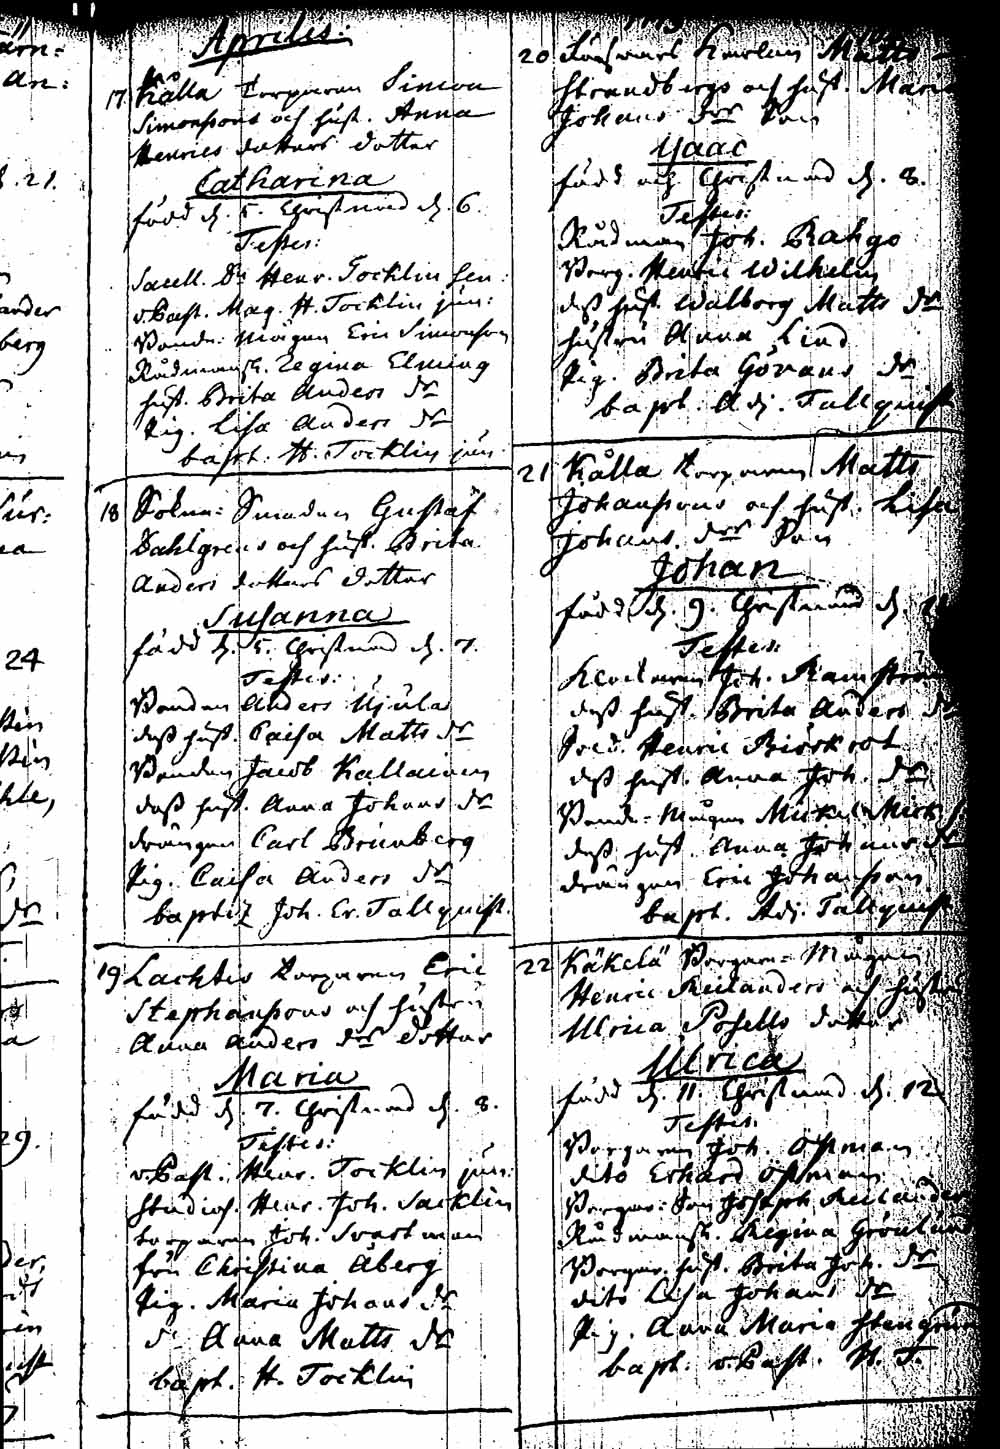 Aprilis:
17 Kålla Torparen Simon
Simonssons och hust. Anna
Henrics dotters dotter
Catharina
född d. 5. Christnad d. 6.
Testes:
Sacell. Dn Henr. Tocklin sen:
v. Past. Mag. H. Tocklin jun:
Bonde-mågen Eric Simonson
Rådmansk. Regina Elming
hust. Brita Anders dr
Pig. Lisa Anders dr
bapt. H. Tocklin jun
18 Sokne-Smeden Gustaf
Dahlgrens och hust. Brita
Anders dotters dotter
Susanna
född d. 5. Christnad d. 7.
Testes:
Bonden Anders Ujula
dess hust. Caisa Matts dr
Bonden Jacob Kallainen
dess hust. Anna Johans dr
drängen Carl Brunberg
Pig. Caisa Anders dr
baptiz Joh. Er. Tallquist.
19 Lachtis torparen Eric
Stephanssons och hustru
Anna Anders drs dotter
Maria
född d. 7. Christnad d. 8.
Testes:
v. Past. Henr. Tocklin jun:
Studios. Henr. Joh. Tocklin
torparen Joh. Svartman
fru Christina Åberg
Pig. Maria Johans dr
d: Anna Matts dr
bapt. H. Tocklin
20 Karlen Matts
Strandbergs och hust. Maria
Johans drs Son
Isaac
född och Christnad d. 8.
Testes:
Rådman Joh. Bahgo
Borg. Henric Wilhelm
dess hust. Walborg Matts dr
hustru Anna Lind
Pig. Brita Görans dr
bapt. Adj. Tallquist
21 Kålla torparen Matts
Johanssons och hust. Lisa
Johans drs Son
Johan
född d. 9. Christnad d.
Testes:
Joh. Ramström
dess hust. Brita Anders dr
Henric Biörkrot
dess hust. Anna Joh. dr
Bonde-Mågen Mickel Mick
dess hust. Anna Johans dr
drängen Eric Johansson
bapt. Adj. Tallquist
22 Käkelä Borgare-Mågen
Henric Reilanders och hustru
Ulrica Posells dotter
Ulrica
född d. 11. Christnad d. 12
Testes:
Borgaren Joh. Östman
dito Erhard Östman
Borgar-Son Joseph Reilander
Rådmansk. Regina Grönlund
Borgar. hust. Brita Joh. dr
dito Lisa Johans dr
Pig. Anna Maria Stengrund
bapt. v. Past. H. T.
21.
24
29.
berg